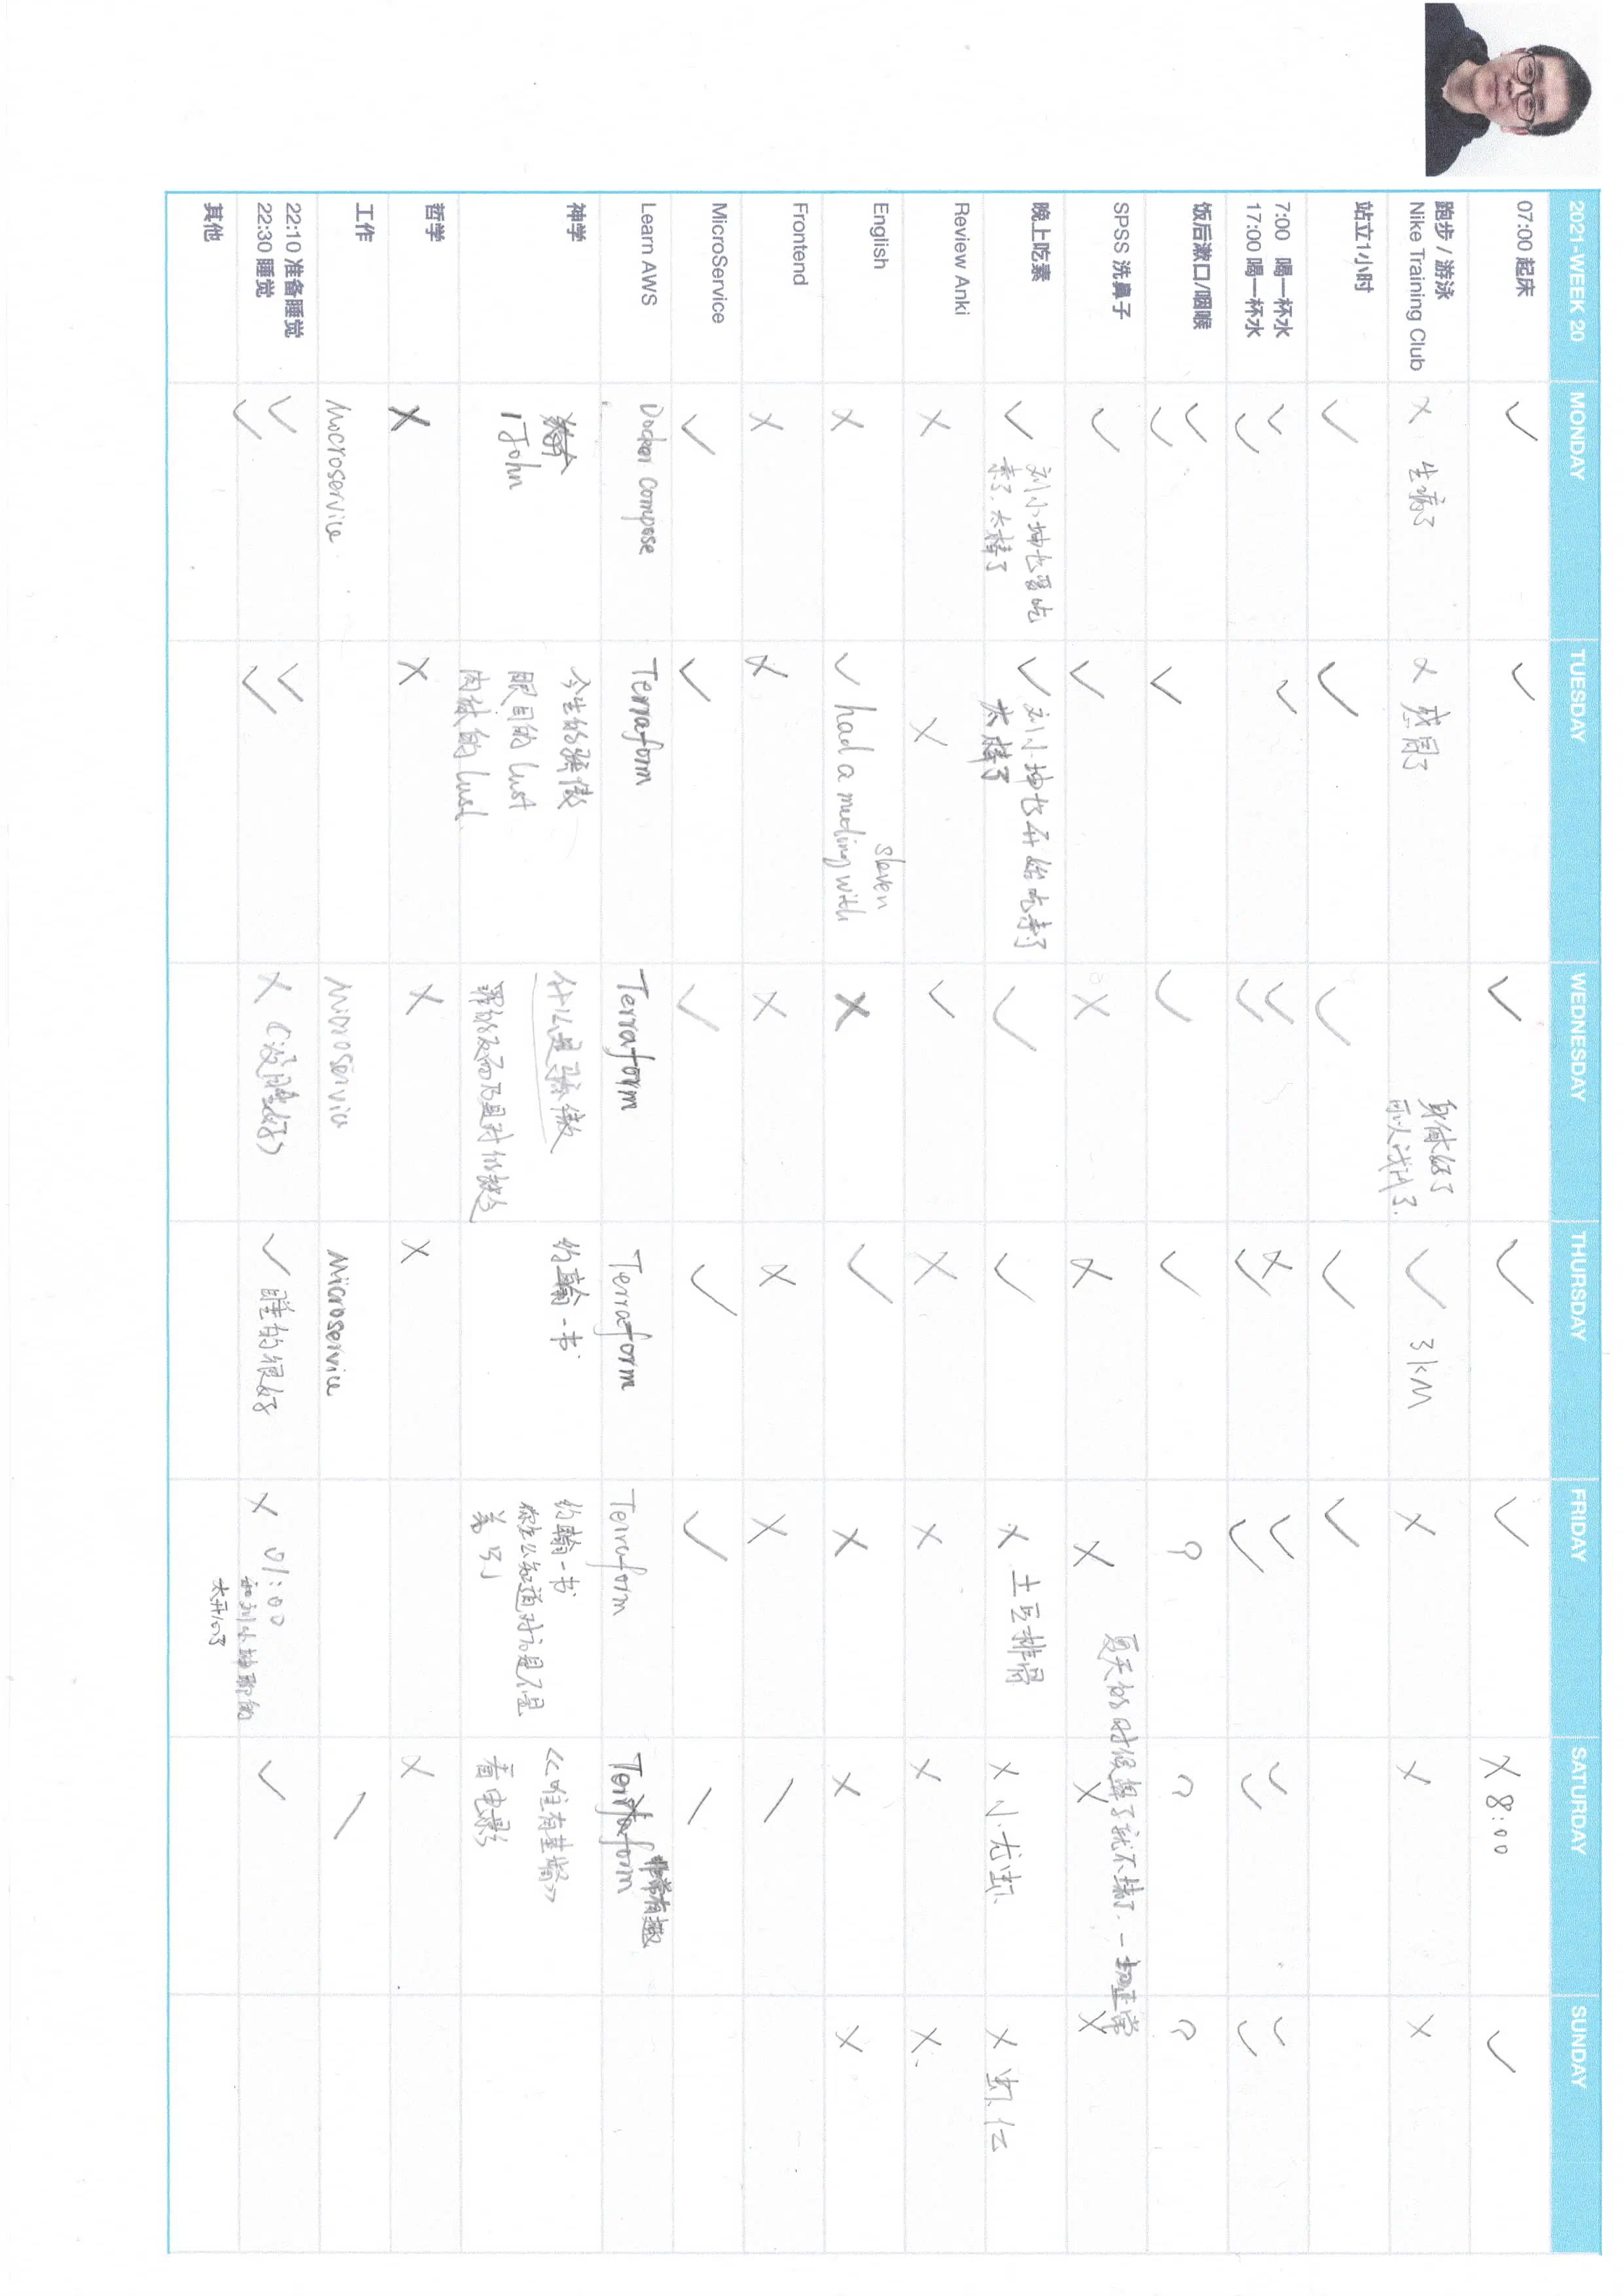 2021-WEEK 20 MONDAY TUESDAY WEDNESDAY THURSDAY FRIDAY SATURDAY SUNDAY
07:00 起床 ✓ ✓ ✓ ✓ ✓ × 8:00 ✓
跑步 / 游泳
Nike Training Club
× 生病了
× 感冒了
身体好了
可以试试了.
✓ 3KM
× × ×
站立1小时 ✓ ✓ ✓ ✓ ✓
7:00 喝一杯水 ✓ ✓ ✓ × ✓ ✓ ✓
17:00 喝一杯水 ✓ ✓ ✓ ✓ ✓ ✓
饭后漱口/咽喉 ✓✓ ✓ ✓ ✓ ? ? ?
SPSS 洗鼻子 ✓ ✓ × × × × ×
夏天的时候停了就不堵了. 一切正常
晚上吃素
✓ 刘小坤也要吃
素了, 太棒了
✓ 刘小坤也开始吃素了
太棒了
✓ ✓
× 土豆排骨
× 小龙虾
× 虾仁
Review Anki × × ✓ × × × ×
English × ✓ had a meeting with
steven
× ✓ × × ×
Frontend × × × × × /
MicroService ✓ ✓ ✓ ✓ ✓ /
Learn AWS Docker Compose Terraform Terraform Terraform Terraform Terraform
非常有趣
神学
1 John
今生的骄傲
眼目的 lust
肉体的 lust
什么是骄傲
约翰一书
约翰一书
《唯有基督》
看电影
哲学 × × × × ×
工作 Microservice Microservice Microservice /
22:10 准备睡觉 ✓ ✓
22:30 睡觉 ✓ ✓
× (没睡好)
✓ 睡的很好
× 01:00
和刘小坤聊的
太开心了
✓
其他